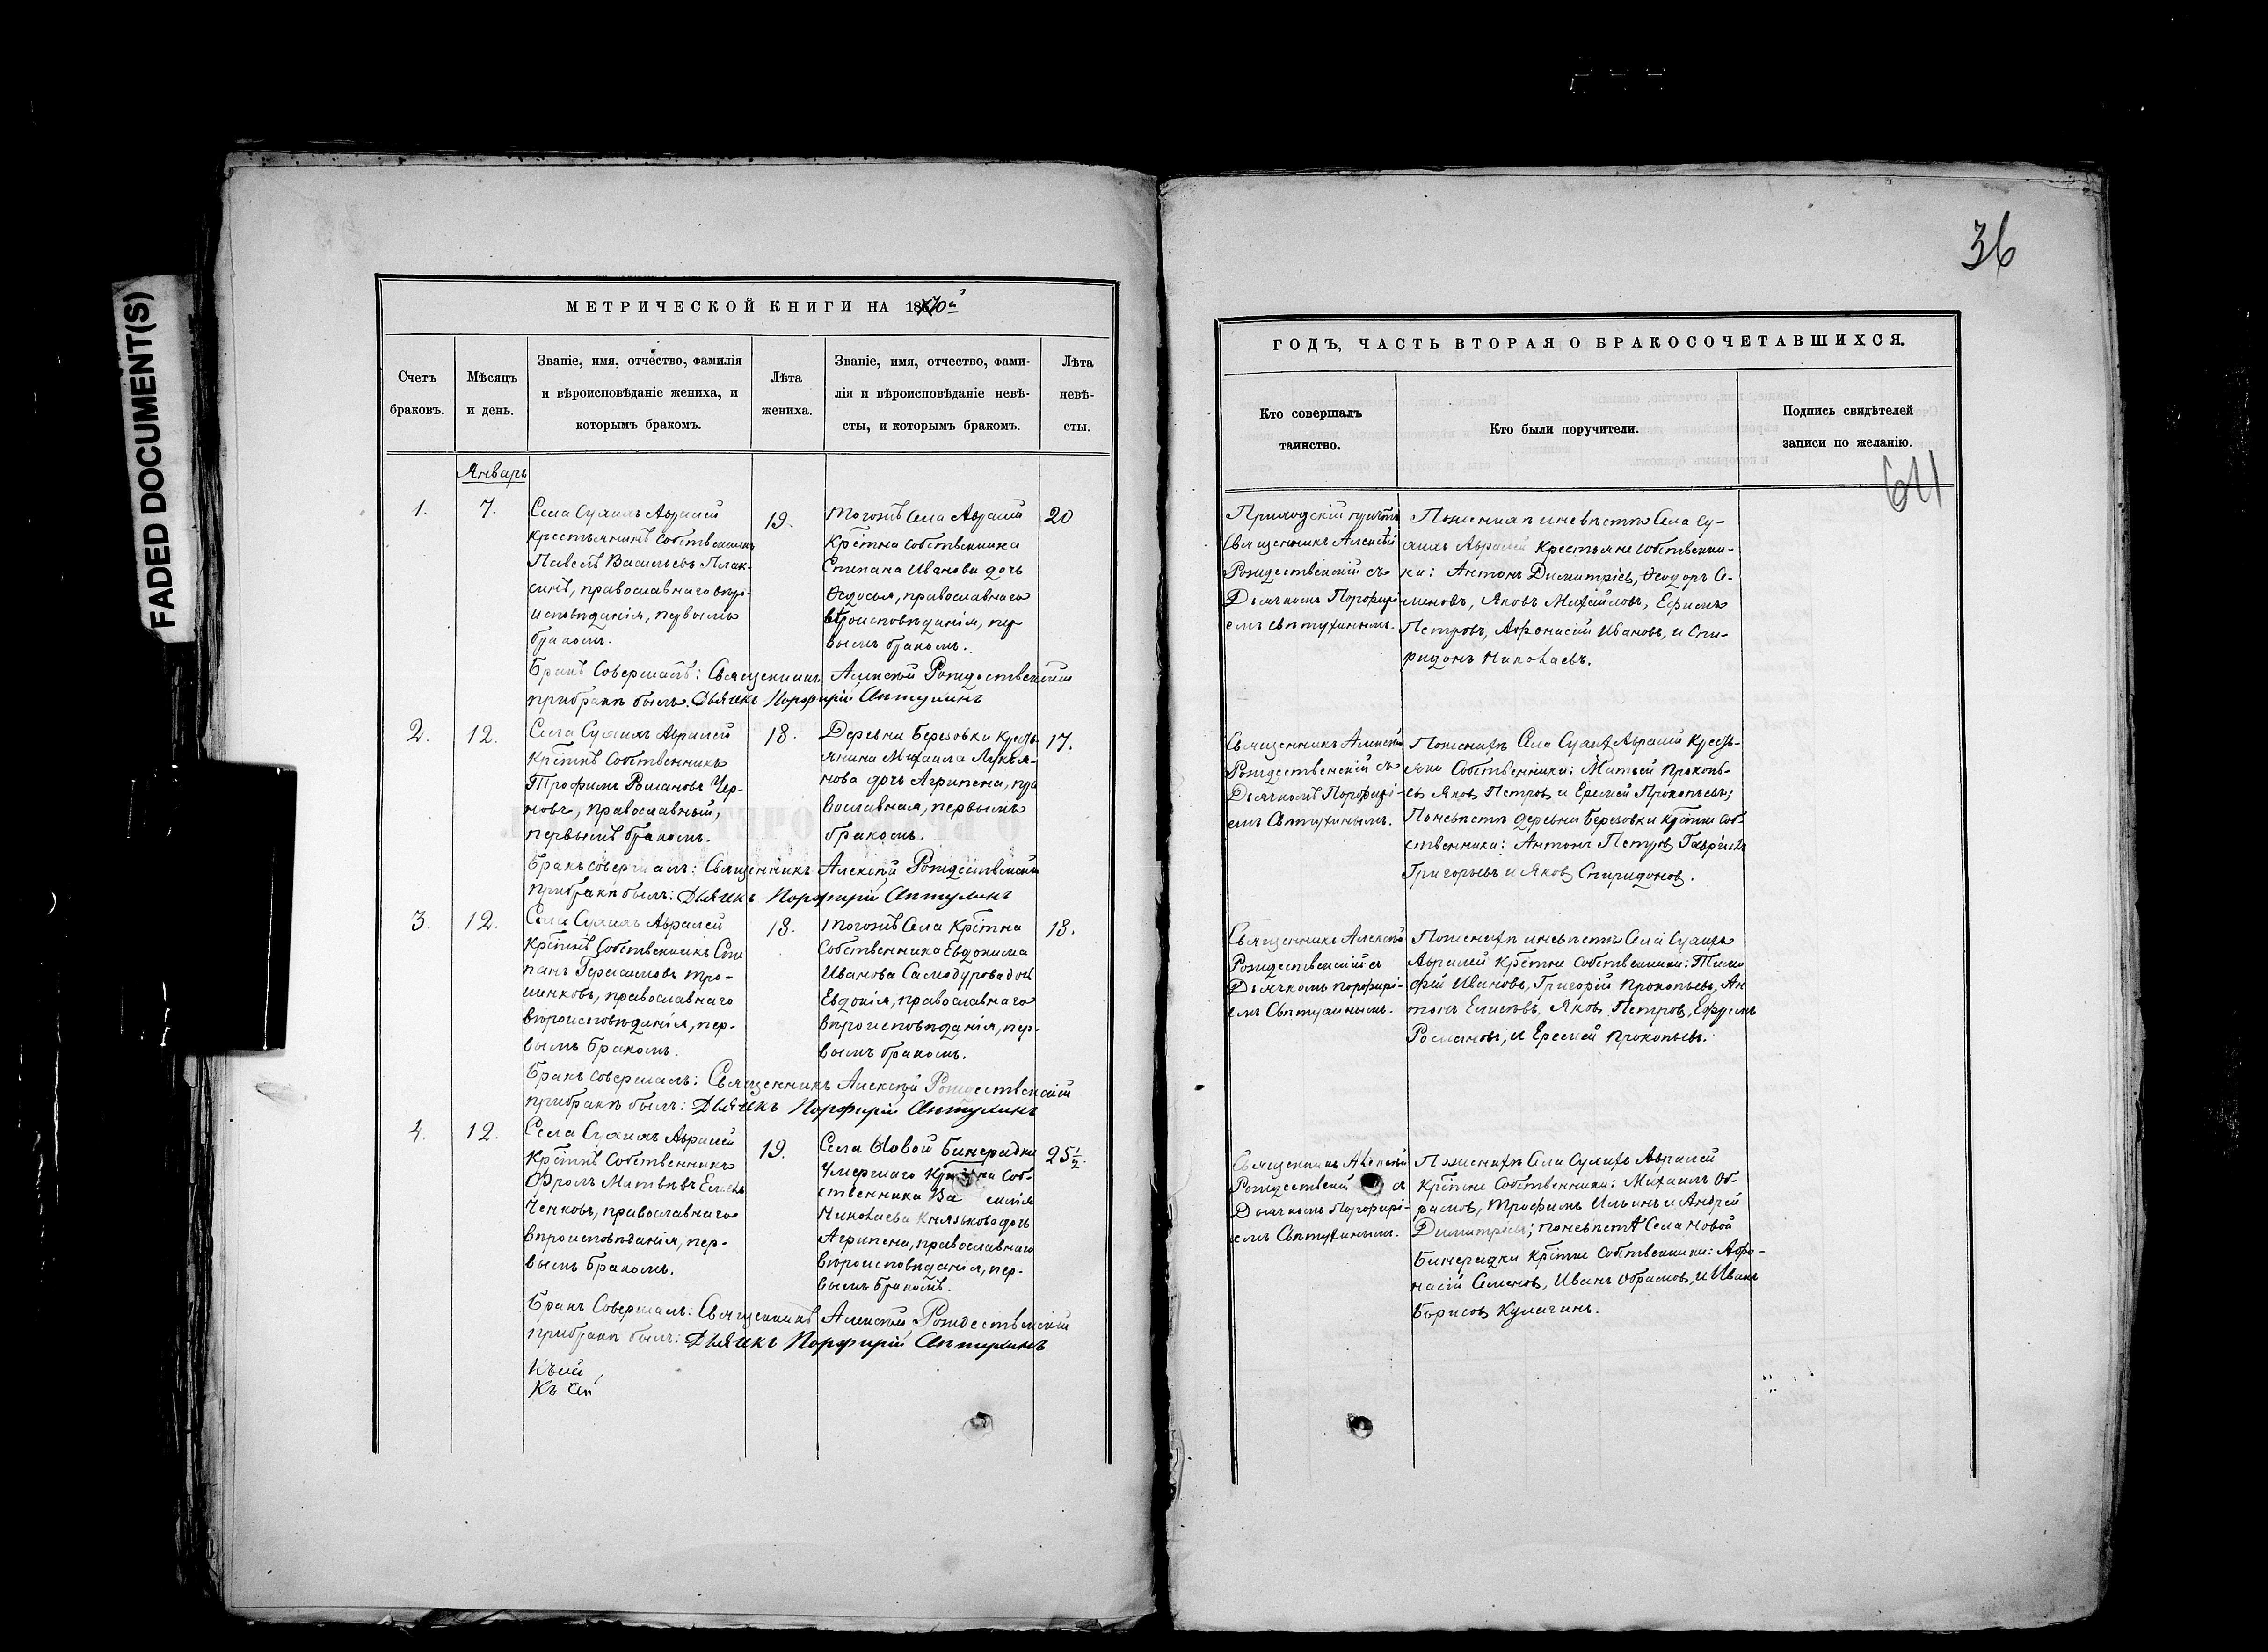 FADED DOCUMENT(S)
МЕТРИЧЕСКОЙ КНИГИ НА 1870й
Счетъ
браковъ.
Мѣсяцъ
и день.
Званіе, имя, отчество, фамилія
и вѣроисповѣданіе жениха, и
которымъ бракомъ.
Лѣта
жениха.
Званіе, имя, отчество, фами-
лія и вѣроисповѣданіе невѣ-
сты, и которымъ бракомъ.
Лѣта
невѣ-
сты.
Январь
1.
7.
Села Сухихъ Авралей
Крестьянинъ Собственникъ
Павелъ Васильевъ Плак-
синъ, православнаго вѣро-
исповѣданія, первымъ
бракомъ.
19.
Тогожъ Села Авралей
Крестна собственника
Степана Иванова дочь
Ѳедосья, православнаго
вѣроисповѣданія, пер
вымъ бракомъ.
20
Бракъ Совершалъ: Священникъ Алексѣй Рождественскій
при бракѣ былъ: Дьячекъ Порфирій Аптулинъ
2.
12.
Села Сухихъ Авралей
Крестнъ Собственникъ
Трофимъ Романовъ Чер-
новъ, православный,
первымъ бракомъ.
18.
Деревни Березовки Кресть-
янина Михаила Лукья-
нова дочь Агрипена, пра
вославная, первымъ
бракомъ.
17.
Бракъ совершалъ: Священникъ Алексѣй Рождественскій
при бракѣ былъ: Дьячекъ Порфирій Аптулинъ
3.
12.
Села Сухихъ Авралей
Крестнъ Собственникъ Сте
панъ Герасимовъ Тро-
шенковъ, православнаго
вѣроисповѣданія, пер-
вымъ бракомъ.
18.
Тогожъ Села Крестна
Собственника Евдокима
Иванова Самодурова дочь
Евдокія, православнаго
вѣроисповѣданія, пер-
вымъ бракомъ.
18.
Бракъ совершалъ: Священникъ Алексѣй Рождественскій
при бракѣ былъ: Дьячекъ Порфирій
4.
12.
Села Сухихъ Авралей
Крестнъ Собственникъ
Фролъ Матвѣевъ
ченковъ, православнаго
вѣроисповѣданія, пер-
вымъ бракомъ.
19.
Села Новой Бинерадки
Умершаго Крестна Соб-
ственника
Николаева Князькова дочь
Агрипена, православнаго
вѣроисповѣданія, пер-
вымъ бракомъ.
25 1/2.
Бракъ Совершалъ: Священникъ Алексѣй Рождественскій
при бракѣ былъ: Дьячекъ Порфирій
36
ГОДЪ, ЧАСТЬ ВТОРАЯ О БРАКОСОЧЕТАВШИХСЯ.
Кто совершалъ
таинство.
Кто были поручители.
Подпись свидѣтелей
записи по желанію.
Приходскій причтъ
Священникъ Алексѣй
Рождественскій съ
Дьячкомъ Порфирі-
емъ
По женихѣ и невѣстѣ Села Су-
хихъ Авралей Крестьяне собственни-
ки: Антонъ Димитріевъ, Ѳеодоръ Се-
меновъ, Яковъ Михайловъ, Ефимъ
Петровъ, Афонасій Ивановъ, и Спи-
ридонъ Николаевъ.
Священникъ Алексѣй
Рождественскій съ
Дьячкомъ Порфирі-
емъ
По женихѣ Села Сухихъ Авралей Кресть-
яне Собственники: Матвей Прокопь-
евъ Яковъ Петровъ и Еремей Прокопьевъ;
По невѣстѣ деревни Березовки Крестне Соб-
ственники: Антонъ Петровъ
Григорьевъ и Яковъ Спиридоновъ.
Священникъ Алексѣй
Рождественскій съ
Дьячкомъ Порфирі-
емъ
По женихѣ и невѣстѣ Села Сухихъ
Авралей Крестне Собственники: Тимо
фей Ивановъ, Григорій Прокопьевъ, Ан
тонъ Елисѣевъ, Яковъ Петровъ, Ефремъ
Романовъ, и Еремей Прокопьевъ.
Священникъ Алексѣй
Рождественскій съ
Дьячкомъ Порфирі-
емъ
По женихѣ Села Сухихъ Авралей
Крестне Собственники: Михаилъ Об-
рамовъ, Трофимъ Ильинъ и Андрей
Димитріевъ; по невѣстѣ Села Новой
Бинерадки Крестне Собственники: Афо-
насій Семеновъ, Иванъ Обрамовъ, и Иванъ
Борисовъ Кулагинъ.